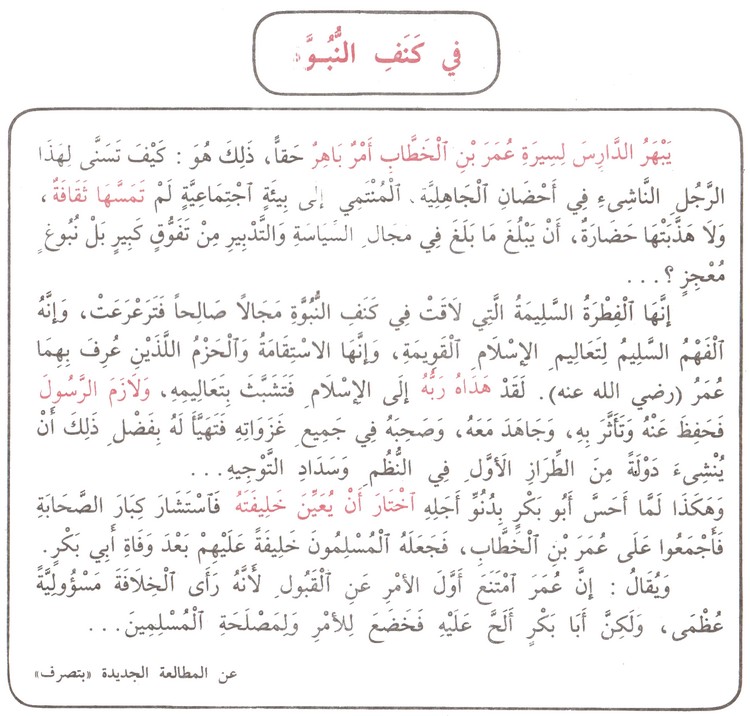 في كَنَفِ النُّبُوَّة
يَبْهَرُ الدَّارِسَ لِسِيرَةِ عُمَرَ بْنِ ٱلْخَطَّابِ أَمْرٌ بَاهِرٌ حَقاًّ، ذَلِكَ هُوَ : كَيْفَ تَسَنَّى لِهَذَا
الرَّجُلِ النَّاشِىءِ فِي أَحْضَانِ الْجَاهِلِيَّةِ، ٱلْمُنْتَمِي إلى بِيئَةٍ ٱجْتِمَاعِيَّةٍ لَمْ تَمَسَّهَا ثَقَافَةٌ ،
وَلَا هَذَّبَتْهَا حَضَارَةٌ، أَنْ يَبْلُغَ مَا بَلَغَ فِي مَجَالِ السِّيَاسَةِ وَالتَّدْبِيرِ مِنْ تَفَوُّقٍ كَبِيرٍ بَلْ نُبُوغٍ
مُعْجِزٍ ؟...
إنَّهَا ٱلْفِطْرَةُ السَّلِيمَةُ الَّتِي لَاقَتْ فِي كَنَفِ النُّبُوَّةِ مَجَالاً صَالِحاً فَتَرَعْرَعَتْ، وَإنَّهُ
ٱلْفَهْمُ السَّلِيمُ لِتَعَالِيمِ الإسْلَامِ ٱلْقَوِيمَةِ، وَإنَّهَا الاسْتِقَامَةُ وَٱلْحَزْمُ اللَّذَيْنِ عُرِفَ بِهِمَا
عُمَرُ (رضي الله عنه). لَقَدْ هَدَاهُ رَبُّهُ إلَى الإسْلَامِ فَتَشَبَّثَ بِتَعَالِيمِهِ، وَلَازَمَ الرَّسُولَ
فَحَفِظَ عَنْهُ وَتَأَثَّرَ بِهِ، وَجَاهَدَ مَعَهُ، وَصَحِبَهُ فِي جَمِيعِ غَزَوَاتِهِ فَتَهَيَّأَ لَهُ بِفَضْلِ ذَلِكَ أَنْ
يُنْشِىءَ دَوْلَةً مِنَ الطِّرَازِ الأَوَّلِ فِي النُّظُمِ وَسَدَادِ التَّوْجِيهِ...
وَهَكَذَا لَمَّا أَحَسَّ أَبُو بَكْرٍ بِدُنُوِّ أَجَلِهِ ٱخْتَارَ أَنْ يُعَيِّنَ خَلِيفَتَهُ فَٱسْتَشَارَ كِبَارَ الصَّحَابَةِ
فَأَجْمَعُوا عَلَى عُمَرَ بْنِ ٱلْخَطَّابِ، فَجَعَلَهُ ٱلْمُسْلِمُونَ خَلِيفَةً عَلَيْهِمْ بَعْدَ وَفَاةِ أَبِي بَكْرٍ.
وَيُقَالُ : إنَّ عُمَرَ ٱمْتَنَعَ أَوَّلَ الأمْرِ عَنِ ٱلْقَبُولِ لأَنَّهُ رَأَى الْخِلَافَةَ مَسْؤُولِيَّةً
عُظْمَى، وَلَكِنَّ أَبَا بَكْرٍ أَلَحَّ عَلَيْهِ فَخَضَعَ لِلأمْرِ وَلِمَصْلَحَةِ ٱلْمُسْلِمِينَ...
عن المطالعة الجديدة «بتصرف»